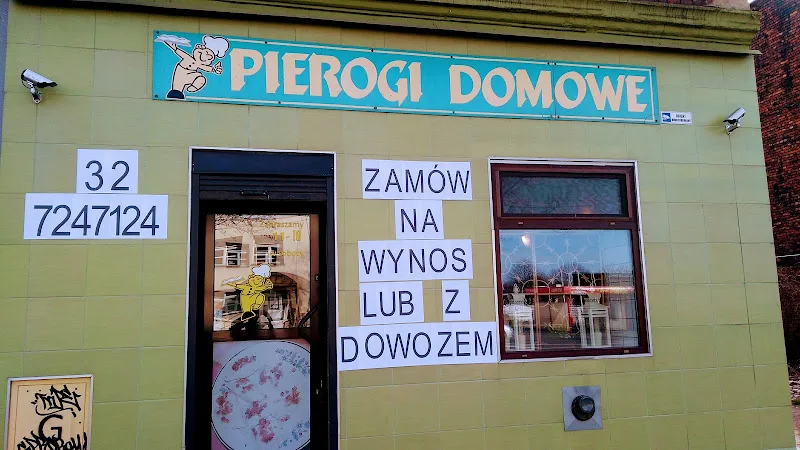 PIEROGI DOMOWE
32
7247124
ZAMÓW
NA
WYNOS
LUB Z
DOWOZEM
Zapraszamy